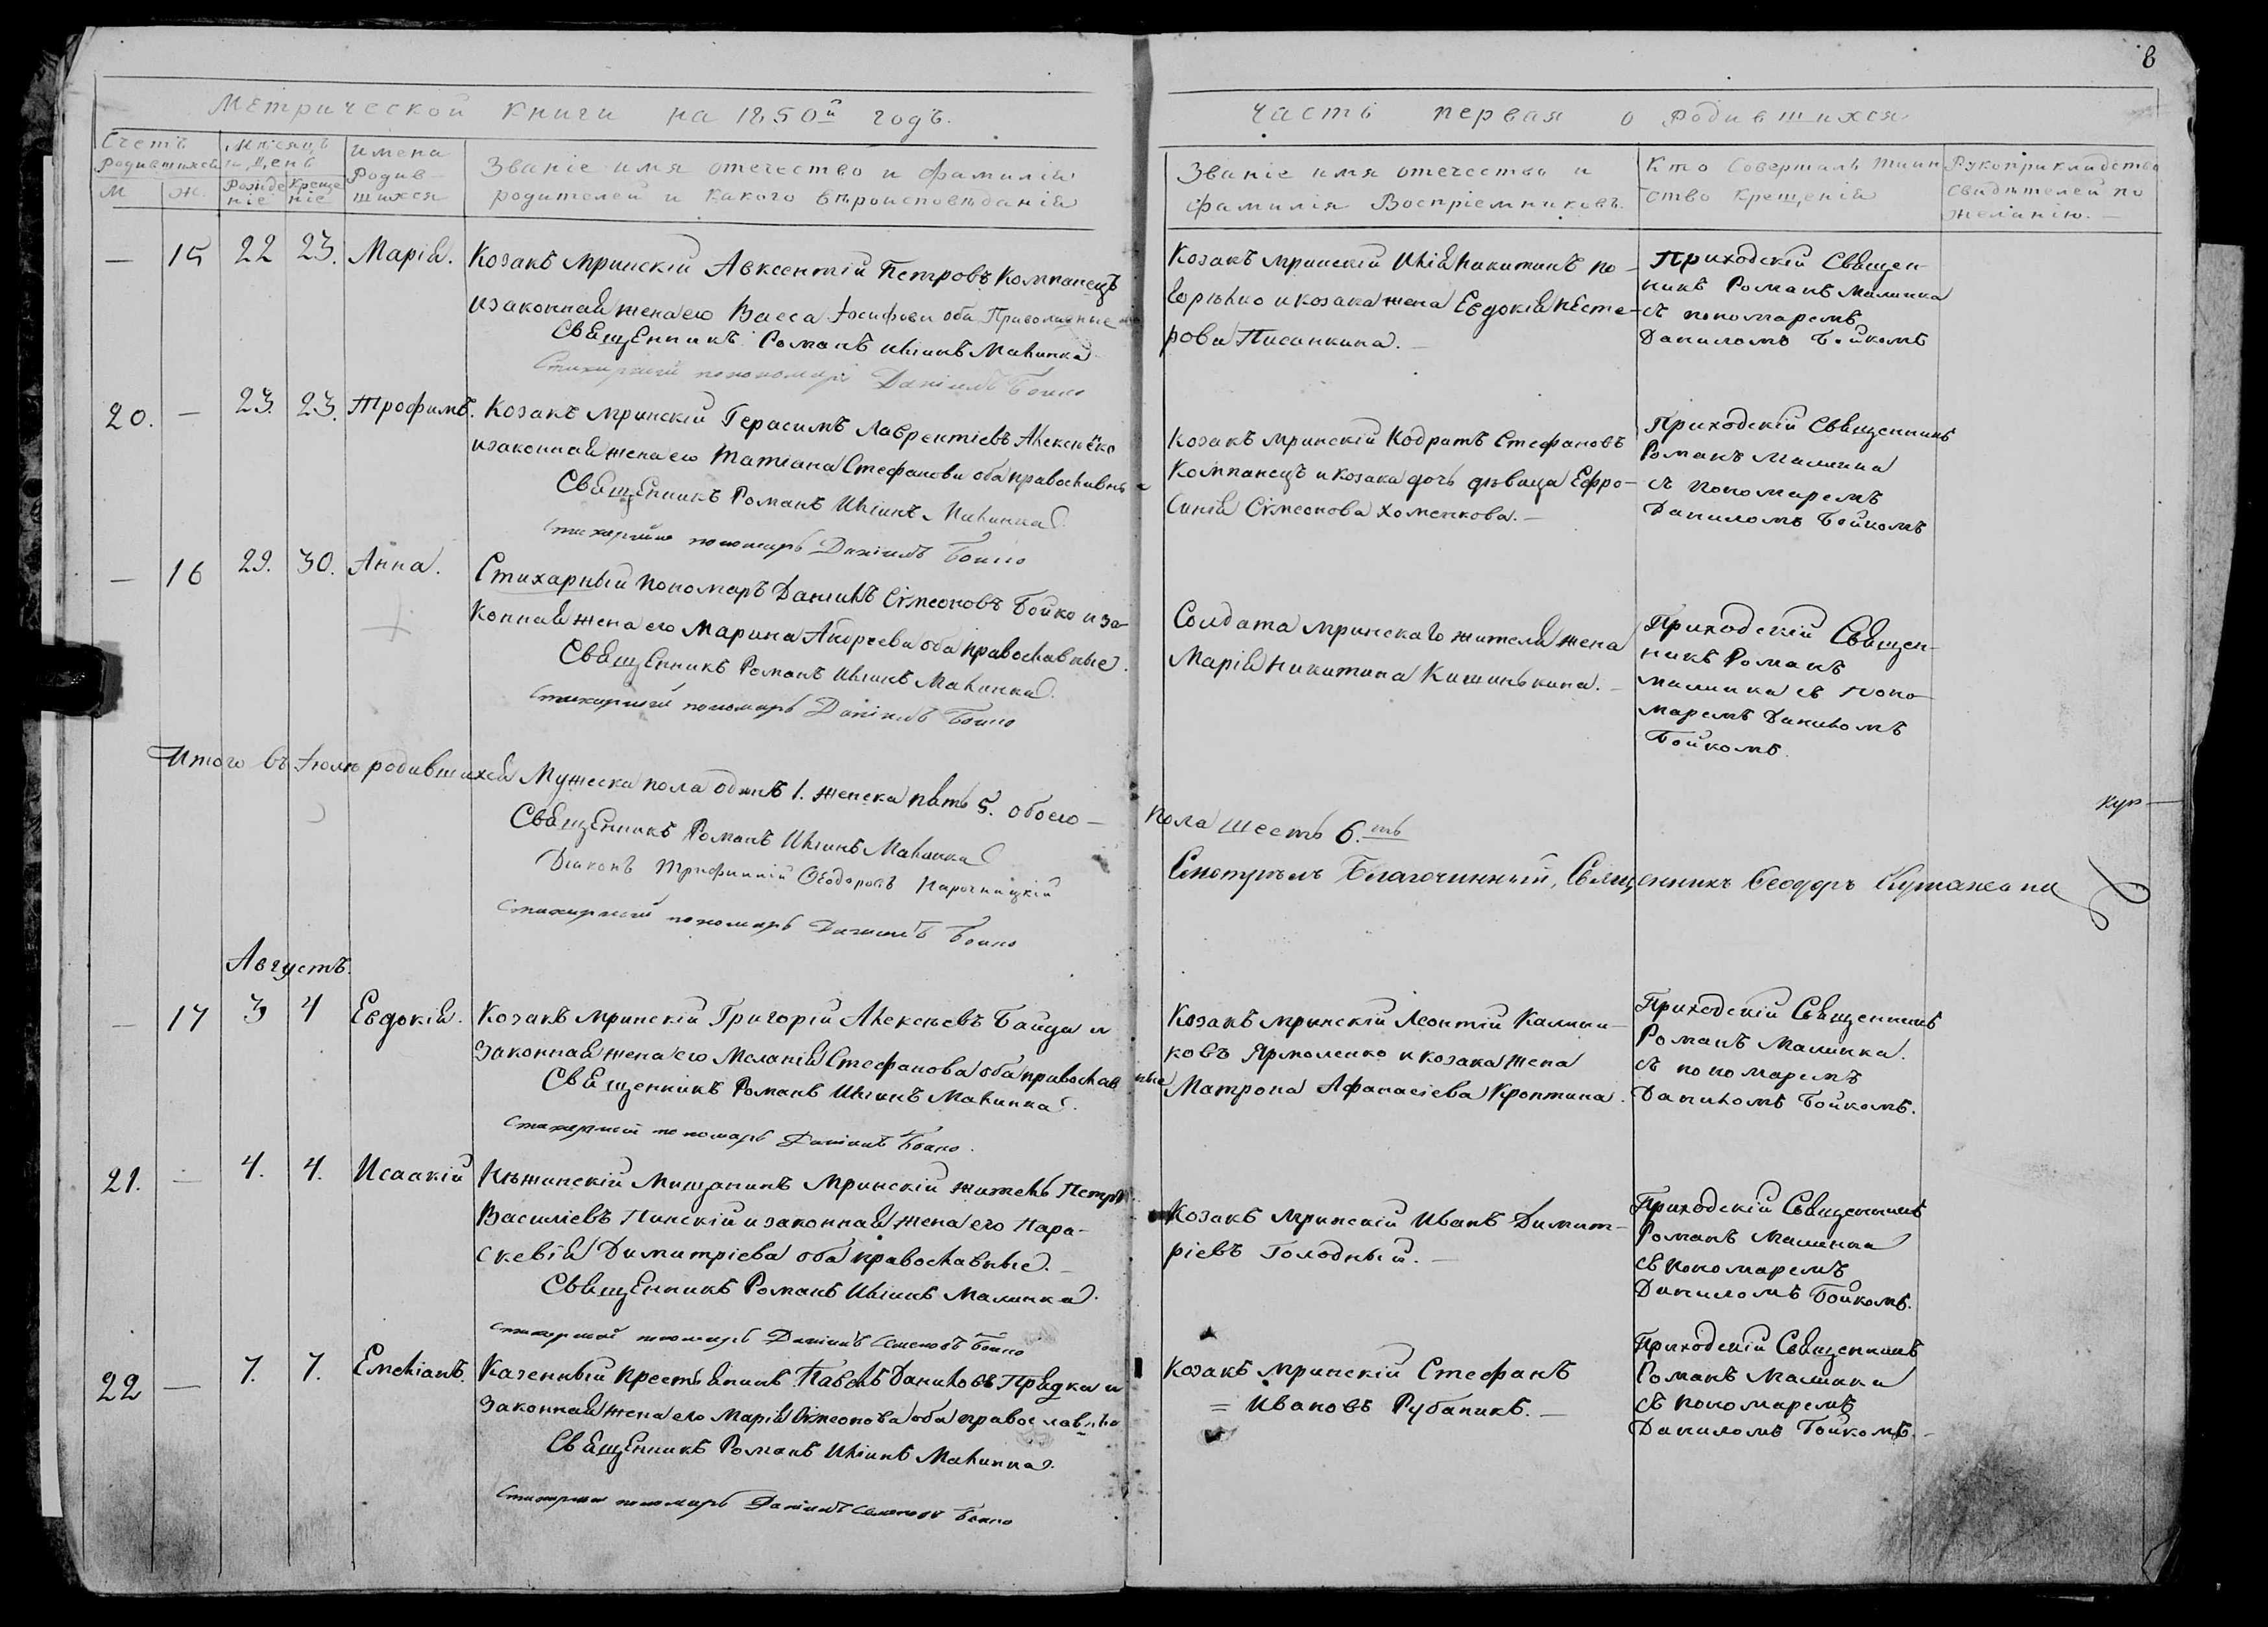 8
Метрической книги на 1850й годъ.
Часть первая о родившихся
Счетъ родившихся
М
Ж.
Мѣсяцъ и день
Рожденіе
Крещеніе
Имена Родившихся
Званіе имя отечество и фамилія
родителей и какого вѣроисповѣданія
Званіе имя отечества и
фамилія Воспріемниковъ.
Кто Совершалъ Таинство Крещенія
Рукоприкладство
Свидѣтелей по
желанію. —
— 15 22 23. Марія.
Козакъ мринскій Авксентій Петровъ Компанецъ
и законная жена его Васса Іосифова оба Православные
Священникъ Романъ Иліинъ Малинка
Стихарный пономарь Даніилъ Бойко
Козакъ мринскій Илія Никитинъ По-
горѣлко и козака жена Евдокія Несте-
рова Писанкина. —
Приходскій Священ-
никъ Романъ Малинка
съ пономаремъ
Даниломъ Бойкомъ
20. — 23. 23. Трофимъ.
Козакъ мринскій Герасимъ Лаврентіевъ Алексѣенко
и законная жена его Татіана Стефанова оба православные
Священникъ Романъ Иліинъ Малинка
Стихарный пономарь Даніилъ Бойко
Козакъ мринскій Кодратъ Стефановъ
Компанецъ и козака дочь дѣвица Ефро-
синія Сѵмеонова Хоменкова. —
Приходскій Священникъ
Романъ Малинка
съ пономаремъ
Даниломъ Бойкомъ
— 16 29. 30. Анна.
Стихарный пономарь Даніилъ Сѵмеоновъ Бойко и за-
конная жена его Марина Андреева оба православные.
Священникъ Романъ Иліинъ Малинка.
Стихарный пономарь Даніилъ Бойко
Солдата мринскаго жителя жена
Марія Никитина Кишинькина. —
Приходскій Священ-
никъ Романъ
Малинка съ поно-
маремъ Даниломъ
Бойкомъ.
Итого въ Іюлѣ родившихся Мужеска пола одинъ 1. женска пять 5. обоего —
пола шесть 6.ть
Священникъ Романъ Иліинъ Малинка
Діаконъ Трифиллій Ѳеодоровъ
Стихарный пономарь Даніилъ Бойко
Смотрѣлъ Благочинный, Священникъ Ѳеодоръ
Августъ.
— 17 3 4 Евдокія.
Козакъ мринскій Григорій Алексѣевъ Байда и
законная жена его Меланія Стефанова оба православные
Священникъ Романъ Иліинъ Малинка.
Стихарный пономарь Даніилъ Бойко.
Козакъ мринскій Леонтій Калини-
ковъ Ярмоленко и козака жена
Матрона Афанасіева Кроптина.
Приходскій Священникъ
Романъ Малинка.
съ пономаремъ
Даниломъ Бойкомъ.
21. — 4. 4. Исаакій
Нѣжинскій Мищанинъ Мринскій житель Петръ
Василіевъ Пинскій и законная жена его Пара-
скевія Димитріева оба православные. —
Священникъ Романъ Иліинъ Малинка.
Стихарный пономарь Даніилъ Семеновъ Бойко
Козакъ мринскій Иванъ Димит-
ріевъ Голодный. —
Приходскій Священникъ
Романъ Малинка
съ пономаремъ
Даниломъ Бойкомъ.
22 — 7. 7. Емеліанъ.
Казенный крестьянинъ Павелъ Даниловъ Прядка и
законная жена его Марія Сѵмеонова оба православные
Священникъ Романъ Иліинъ Малинка.
Стихарный пономарь Даніилъ Семеновъ Бойко
Козакъ мринскій Стефанъ
= Ивановъ Рубаникъ. —
Приходскій Священникъ
Романъ Малинка
съ пономаремъ
Даниломъ Бойкомъ. —